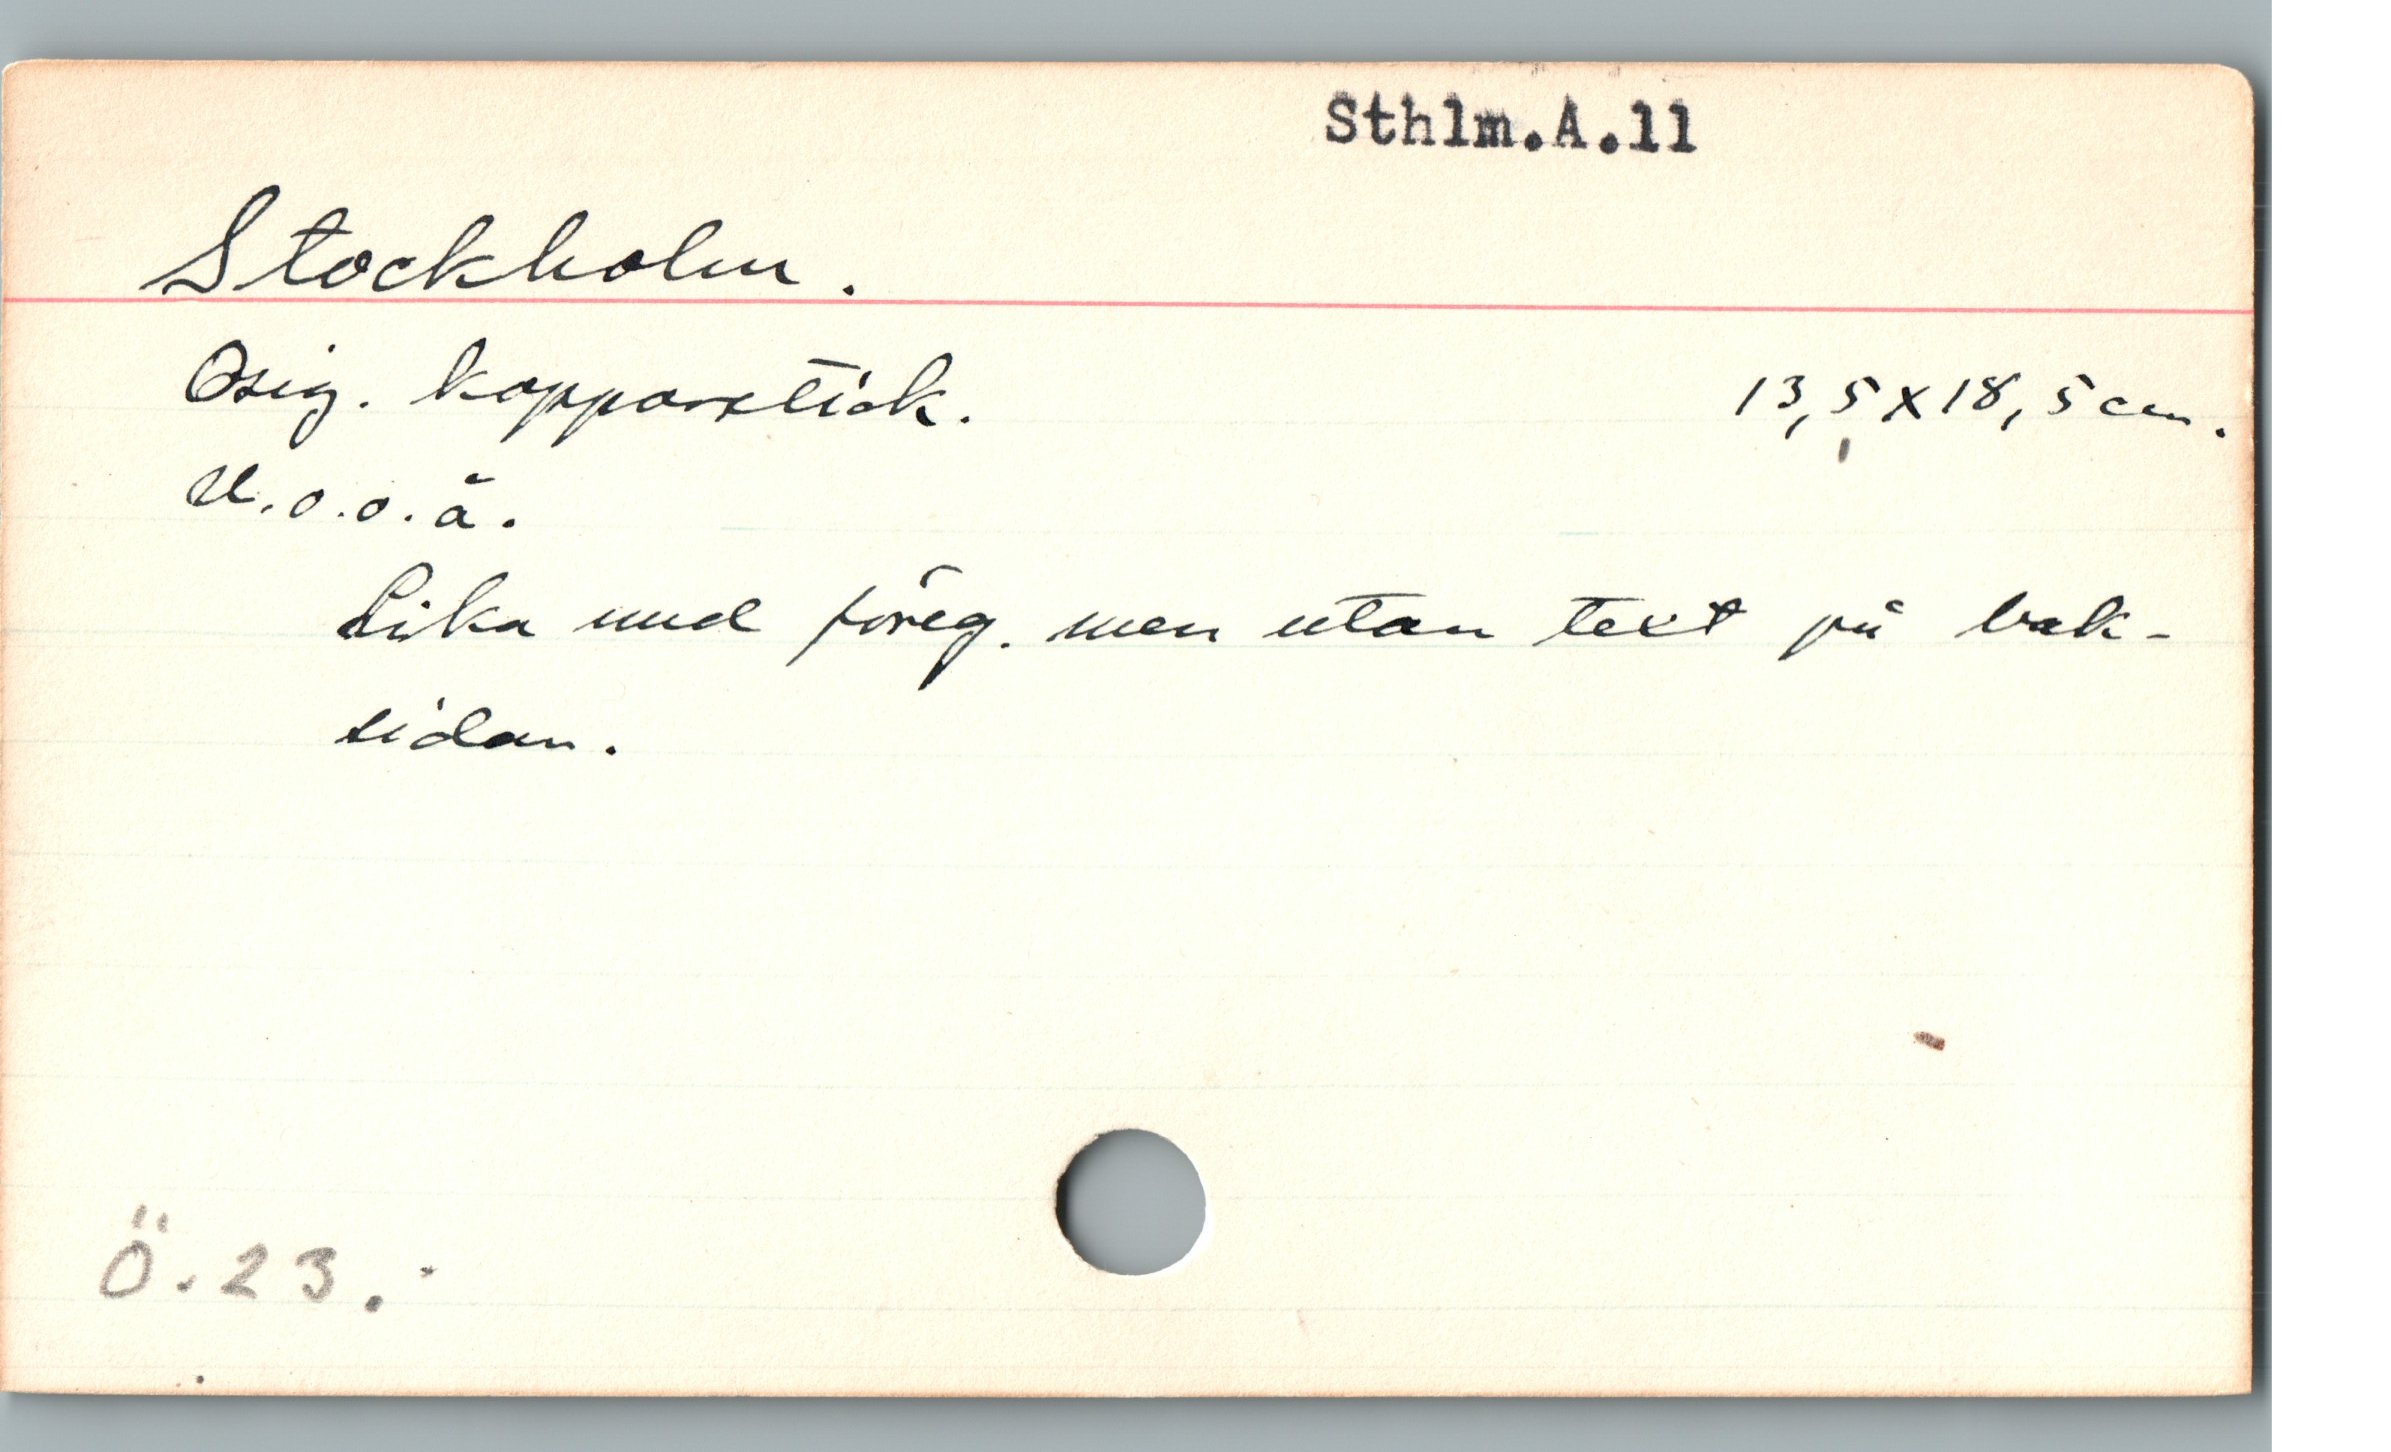 Sthlm.A.11
Stockholm.
Osig. kopparstick. 13,5x18,5cm.
U.o.o.å.
Lika med föreg. men utan text på bak-
sidan.
Ö.23.